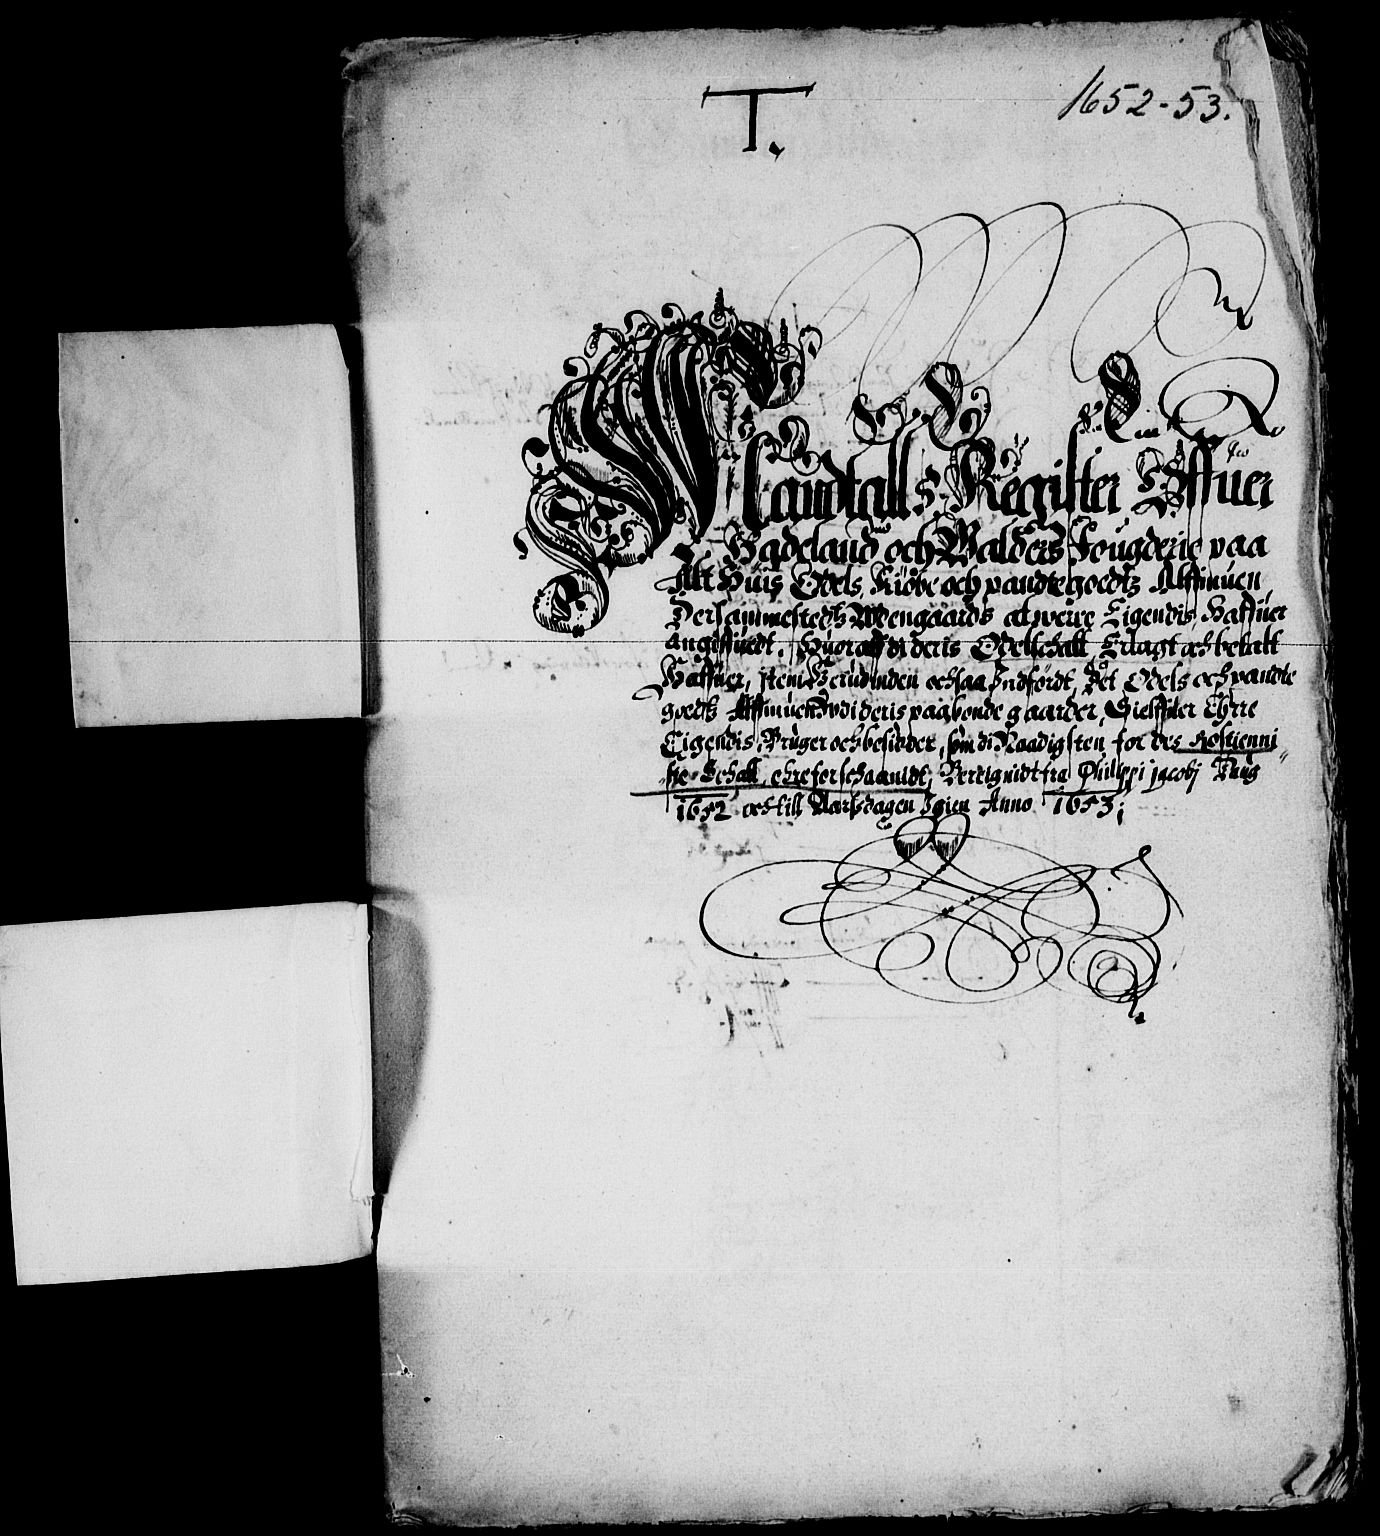 T.
1652-53.
Ein
Mandtalls Register Offuer
Hadeland och Walders Fougderie paa
Alt Huis Odels, Kiöbe och pandtegoedtz Allmuen
Dersammestedtz Udengaards at werre Eigendis, Haffuer
angiffuedt, Huoraff di deris Odelschatt Erlagt och betalt
Haffuer, item Herudinden ochsaa Indfördt, Det Odels och pandte
goedtz Allmuen udi deris paabonde gaarder, Sielffuer
Eigendis, Bruger och besidder, som di Naadigsten for des Rostienni
ste Schatt, ehre forschaanidt, Beregnidt fra Philippi Jacobj Dag
1652 och till Aarsdagen Igien Anno 1653;